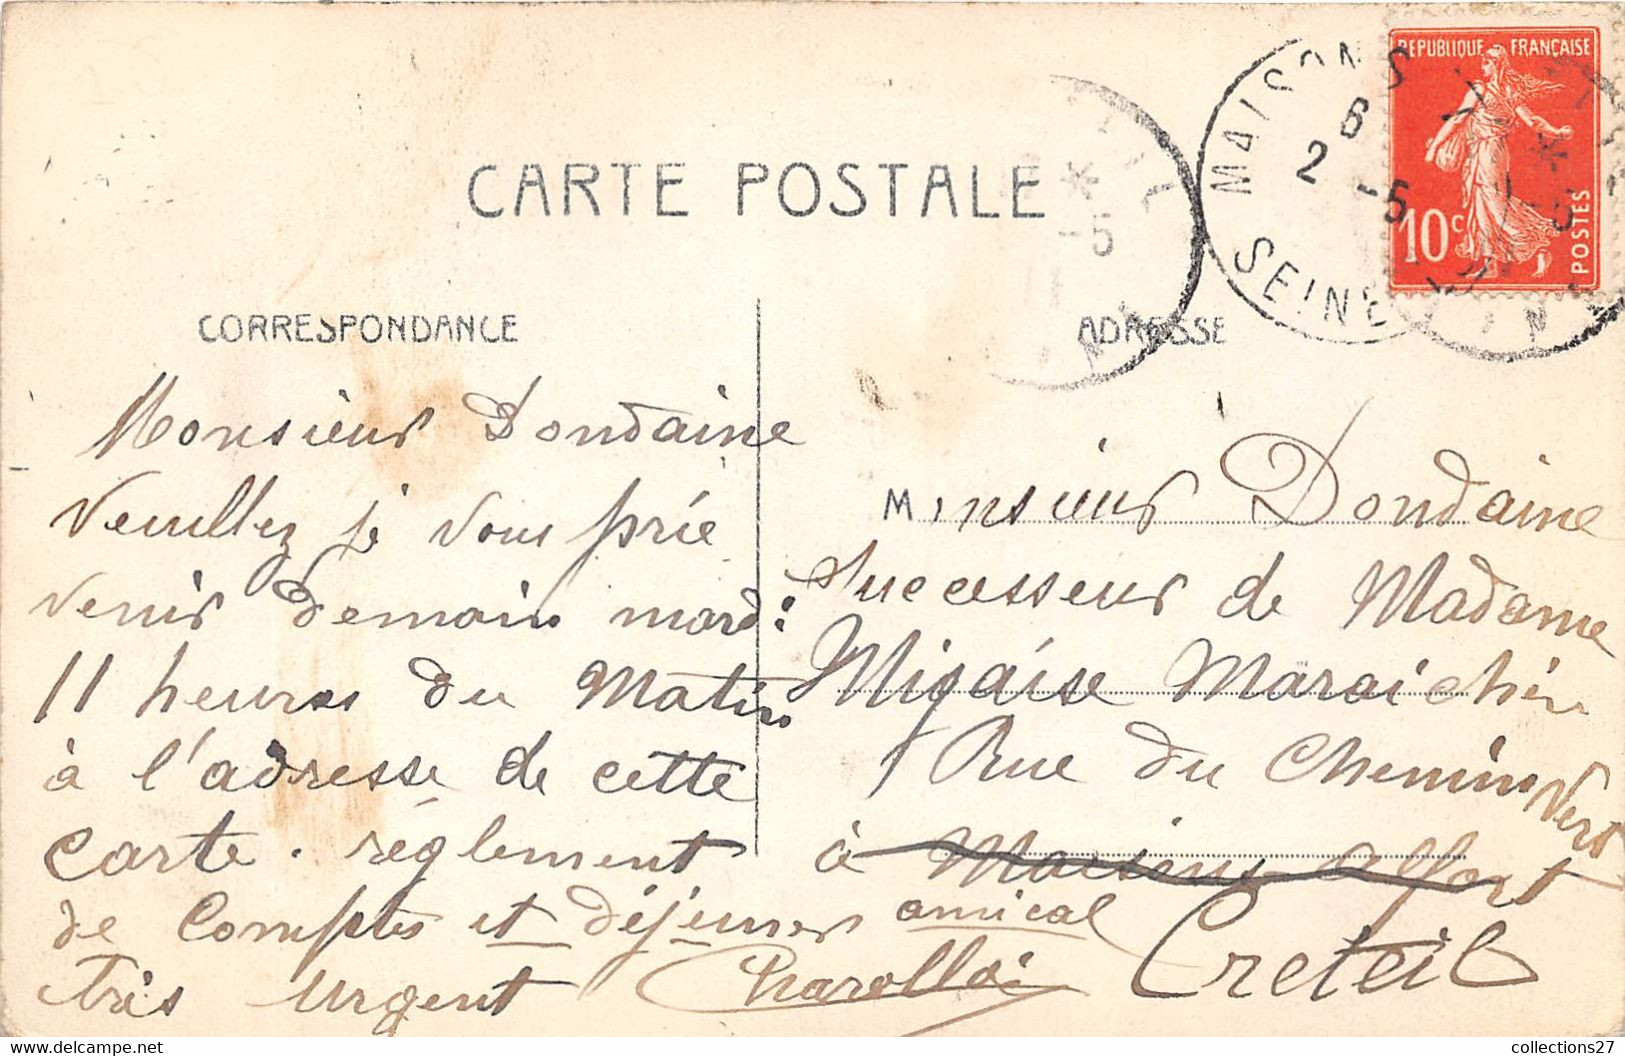 CARTE POSTALE
MAISONS
6
2 -5
SEINE
REPUBLIQUE FRANÇAISE
10c
POSTES
* -5
* -5
CORRESPONDANCE
Monsieur Dondaine
Veuillez je vous prie
venir demain mardi
11 heures du Matin
à l'adresse de cette
Carte. règlement
de Comptes et déjeuner amical
très urgent Charollai
ADRESSE
Monsieur Dondaine
Successeur de Madame
Migaïse Maraichèr
Rue du Chemin Vert
à Maisons Alfort
Creteil
collections27